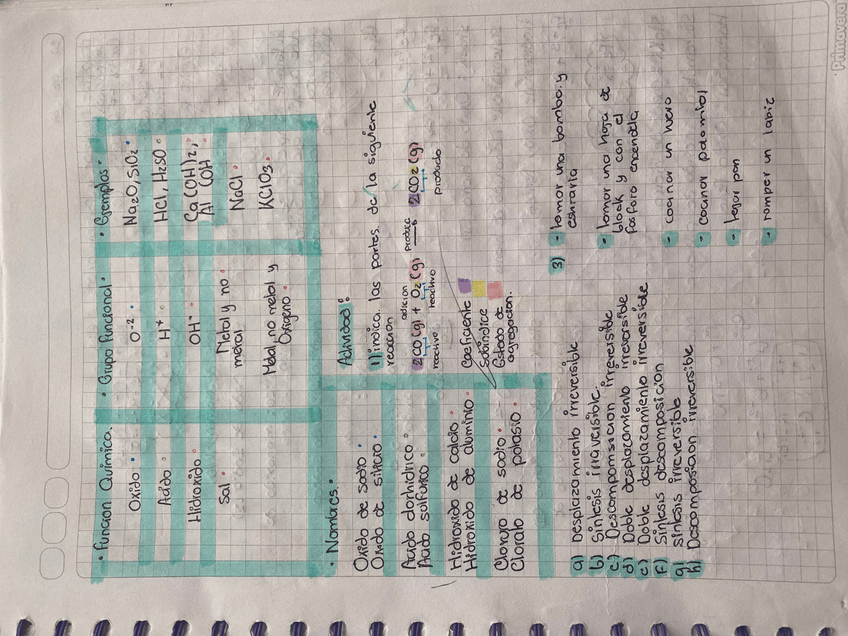 • Funcion Quimica.
• Grupo Funcional •
• Ejemplos •
Oxido •
O⁻² •
Na₂O, SiO₂ •
Acido •
H⁺ •
HCl, H₂SO •
Hidroxido •
OH⁻ •
Ca(OH)₂,
Al COH
Sal •
Metal y no
metal •
NaCl •
Metal, no metal y
Oxigeno •
KClO₃ •
• Nombres •
Oxido de sodio •
Oxido de silicio •
Acido clorhidrico •
Acido sulfurico •
Hidroxido de calcio •
Hidroxido de aluminio •
Cloruro de sodio •
Clorato de potasio •
Actividad:
1) indica las partes de la siguiente
reacción
adicion
produc
2CO(g) + O₂(g) → 2CO₂(g)
reactivo
reactivo
producto
Coeficiente
Subindice
Estado de
agregacion.
a) Desplazamiento irreversible
b) Sintesis irraversible.
c) Descomposicion irreversible
d) Doble desplacamiento irreversible
e) Doble desplazamiento irreversible
F) Sintesis descomposicion
g) Sintesis irreversible
h) Descomposicion irreversible
3) - tomar una bomba y
estirarla
- tomar una hoja de
block y con el
fosforo encenderla
- cocinar un huevo
- cocinar palomitas
- hacer pan
- romper un lapiz
Primavera